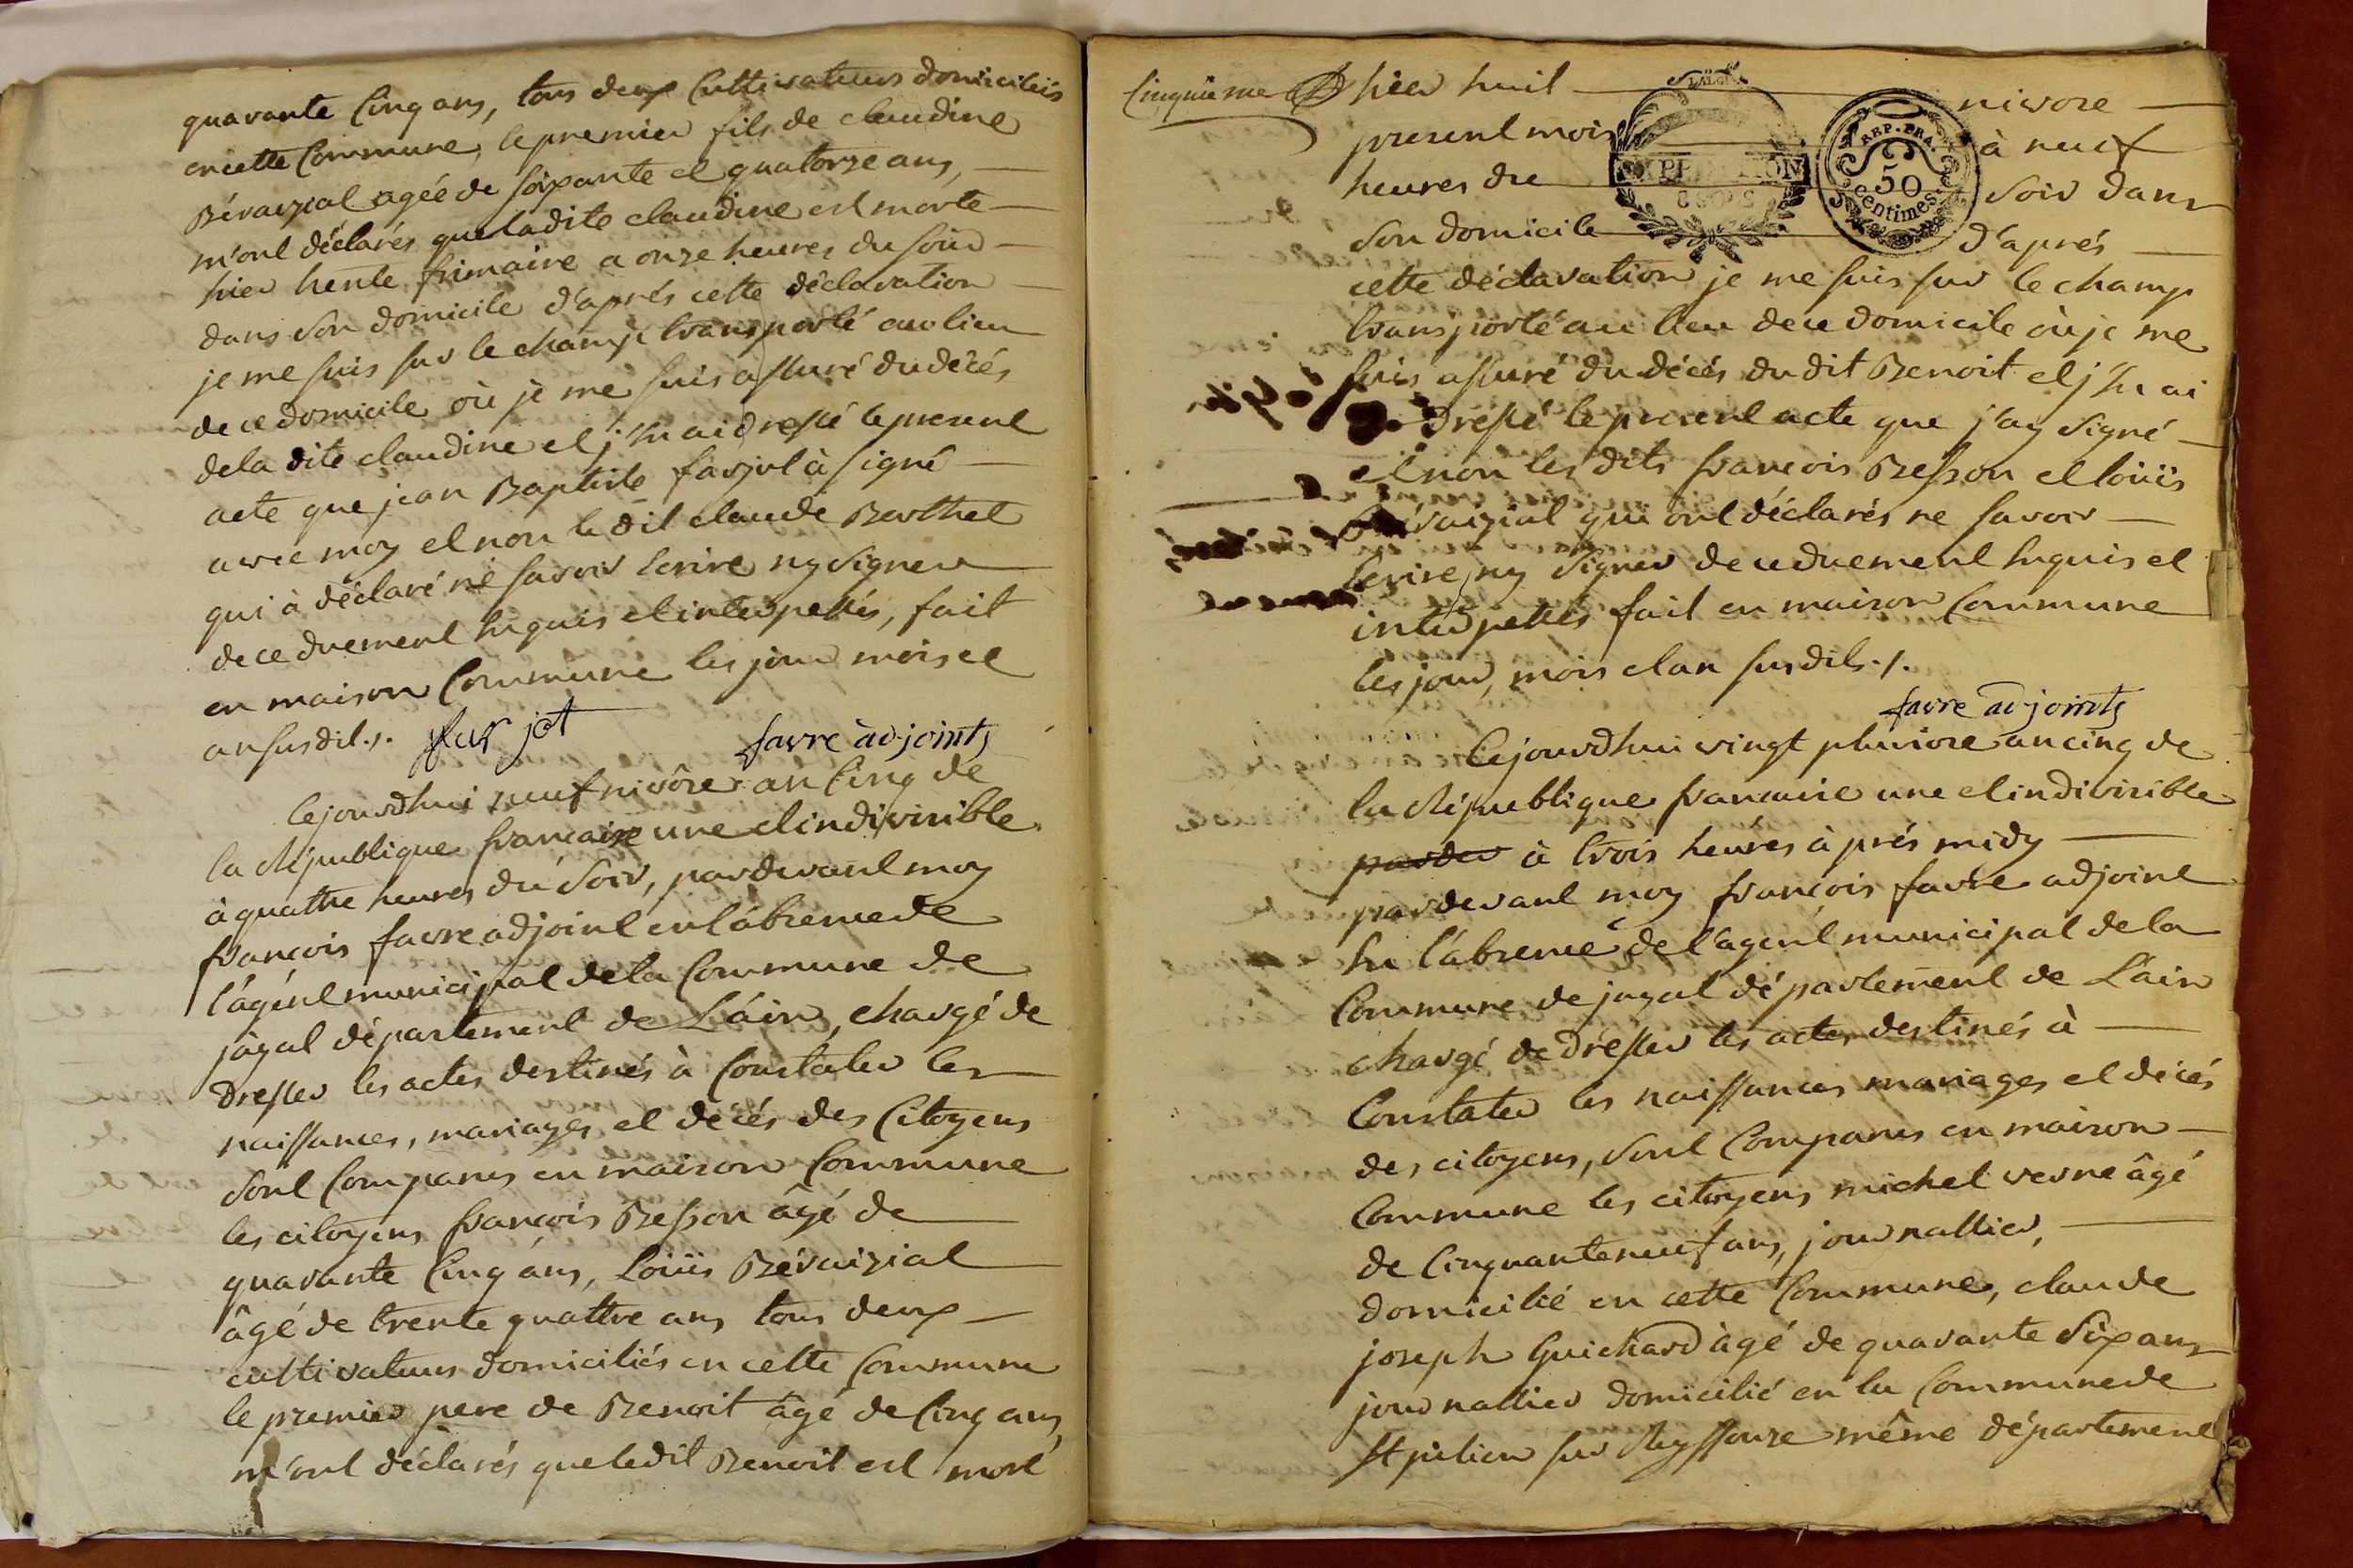 quarante Cinq ans, tous deux Cultivateurs domiciliés
en cette Commune, le premier fils de claudine
Bévaizial agée de soixante et quatorze ans,
m'ont déclarés que la dite claudine est morte
hier trente frimaire a onze heures du soir
dans son domicile d'aprés cette déclaration
je me suis sur le champ transporté au lieu
de ce domicile où je me suis assuré du décés
de la dite claudine et j'en ai dressé le present
acte que jean Baptiste farjot à signé
avec moy et non le dit claude Barthet
qui à déclaré ne savoir Ecrire ny signer
de ce duement Enquis et interpellés, fait
en maison Commune les jour mois et
an susdit./. farjot favre adjoint
Cejourdhui neuf nivôse an Cinq de
la République francaise une et indivisible
à quattre heures du soir, pardevant moy
francois favre adjoint en l'absence de
l'agént municipal de la Commune de
jayat département de L'áin, chargé de
dresser les actes destinés à Constater les
naissances, mariages et décés des Citoyens
sont Comparus en maison Commune
les citoyens francois Besson âgé de
quarante Cinq ans, Loüis Bévaizial
âgé de trente quattre ans tous deux
cultivateurs domiciliés en cette Commune
le premier pere de Benoit âgé de Cinq ans,
m'ont déclarés que le dit Benoit est mort
Cinquieme hier huit nivose
present mois à neuf
heures du soir dans
son domicile d'aprés
EXPEDITION
REP. FRA.
50
centimes
cette déclaration je me suis sur le champ
transporté au lieu de ce domicile où je me
suis assuré du décés du dit Benoit et j'en ai
dressé le present acte que j'ay signé
et non les dits francois Besson et loüis
Bévaizial qui ont déclarés ne savoir
Ecrire ny signer de ce duement Enquis et
interpellés fait en maison Commune
les jour, mois et an susdits./.
favre adjoint
Cejourdhui vingt pluviose an cinq de
la République francaise une et indivisible
pardev à trois heures à prés midy
pardevant moy francois favre adjoint
En l'absence de l'agent municipal de la
Commune de jayat département de L'áin
chargé de dresser les actes destinés à
Constater les naissances mariages et décés
des citoyens, sont Comparus en maison
Commune les citoyens michel verne âgé
de Cinquante neuf ans, journallier,
domicilié en cette Commune, claude
joseph Guichard àgé de quarante six ans
journallier domicilié en la Commune de
St julien sur Reyssouze même département